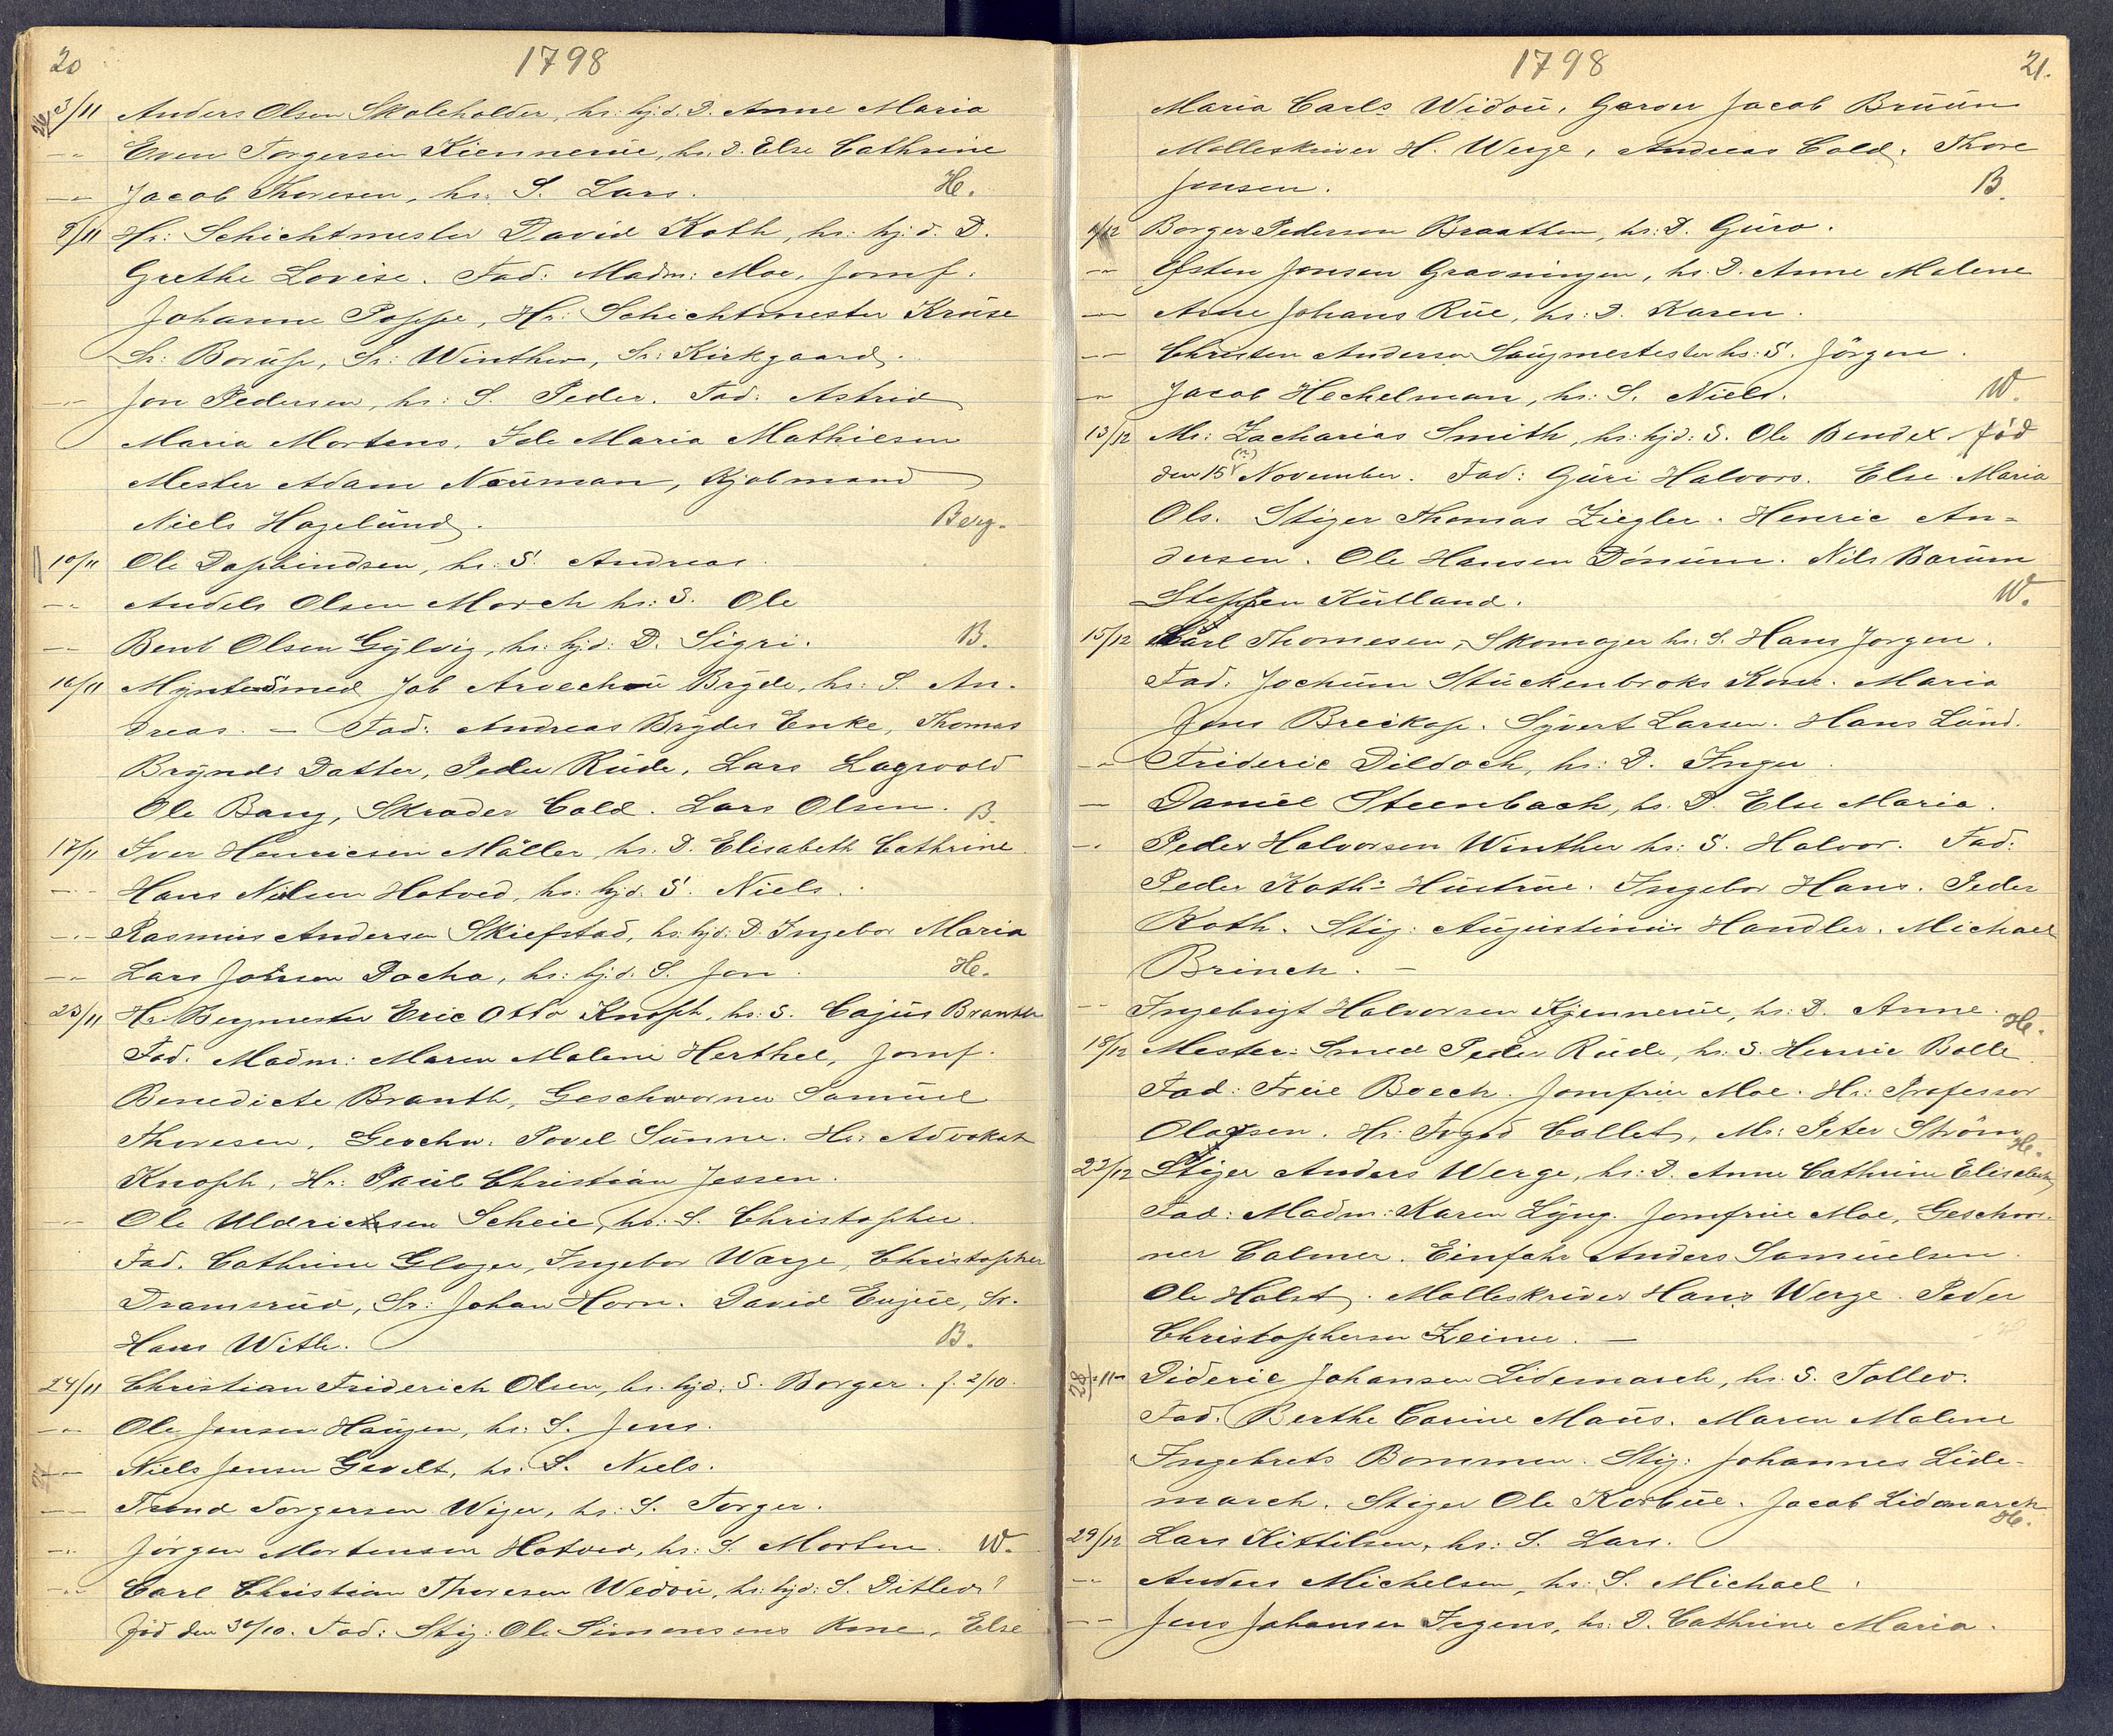 20
1798
26
3/11 Anders Olsen Skoleholder, hs: hj.d. D. Anne Maria
-"- Even Torgersen Kiennerüe, hs. D. Else Cathrine
-"- Jacob Thoresen, hs: S. Lars. He.
9/11 Hr: Schichtmester David Koth, hs: hj.d. D.
Grethe Lovise. Fad: Madm: Moe, Jomf:
Johanne Poppe, Hr: Schichtmester Krüse
Sr: Borüp, Sr: Winther, Sr: Kirkgaard.
-"- Jon Pedersen, hs: S. Peder. Fad: Astrid
Maria Mortens, Ide Maria Mathiesen
Mester Adam Naüman, Kjøbmand
Niels Hagelünd. Berg.
10/11 Ole Daphindsen, hs: S. Andreas
-"- Andels Olsen Morch hs: S. Ole
-"- Bent Olsen Gÿlvig, hs: hjd: D. Sigri. B.
16/11 Mÿntesmed Job Arvechü Brÿde, hs: S. An-
dreas. - Fad: Andreas Brÿdes Enke, Thomas
Brÿnds Datter, Peder Rüde, Lars Lagwold
Ole Bang, Skrader Cold. Lars Olsen. B.
17/11 Iver Henricsen Möller, hs. D. Elisabeth Cathrine
-"- Hans Nilsen Hotved, hs: hj.d. S. Niels.
-"- Rasmus Andersen Skiefstad, hs: hjd: D. Ingebor Maria
-"- Lars Jonsen Pocha, hs: hj.d. S. Jon. He.
23/11 Hr. Bergmester Eric Otto Knoph, hs: S. Cajüs Branth
Fad. Madm: Maren Malene Herthel, Jomf.
Benedicte Branth, Geschworner Samüel
Thoresen, Geschw. Povel Sünne. Hr: Advokat
Knoph, Hr: Paül Christian Jessen.
-"- Ole Uldricksen Scheie, hs: S. Christopher.
Fad. Cathrine Gloger, Ingebor Warge, Christopher
Dramsrüd, Sr: Johan Horn. David Eujüe, Sr.
Hans With. B.
24/11 Christian Friderich Olsen, hs. hjd: S. Borger. f. 2/10.
-"- Ole Jensen Haügen, hs: S. Jens.
27
-"- Niels Jensen Gevelt, hs: S. Niels.
-"- Trond Torgersen Wiger, hs: S. Torger.
-"- Jörgen Mortensen Hotved, hs: S. Morten. W.
-"- Carl Christian Thoresen Wedoü, hs: hjd: S. Ditlev?
fød den 30/10. Fad: Stig: Ole Simensens Kone, Else
1798
21.
Maria Carls Widoü, Garver Jacob Brüün
Molleskriver H. Werge, Andreas Cold, Thore
Jensen. B.
1/12 Borger Pedersen Braatten, hs: D. Güro.
-"- Østen Jonsen Gravningen, hs. D. Anne Malene
-"- Arne Johans Rüe, hs: D. Karen.
-"- Christen Andersen Saugmestester hs: S. Jörgen.
-"- Jacob Hechelman, hs: S. Niels. W.
13/12 Mr: Zacharias Smith, hs: hjd: S. Ole Bendex. fød
den 15 (n) November. Fad: Güri Halvors. Else Maria
Ols. Stiger Thomas Ziegler. Henric An=
dersen. Ole Hansen Dönüm. Nils Barüm
Steffen Külland. W.
15/12 Carl Thomesen, Skomager hs: S. Hans Jorgen.
Fad. Jochüm Stückenbroks Kone. Maria
Jens Breikop. Sÿvert Larsen. Hans Lünd.
-"- Frideric Dildoch, hs: D. Inger.
-"- Daniel Steenbach, hs. D. Else Maria.
-"- Peder Halvorsen Winther hs: S. Halvor. Fad:
Peder Koths Hüstrüe. Ingebor Hans. Peder
Koth. Stig: Augüstinüs Handler. Michael
Brinch. -
-"- Ingebrigt Halvorsen Kjennerüe, hs: D. Anne. He.
18/12 Mester: Smed Peder Rüde, hs: S. Henric Bolle
Fad: Früe Boech. Jomfrüe Moe. Hr: Professor
Olavsen. Hr: Fogd Collet, Mr: Peter Ström He.
23/12 Stiger Anders Werge, hs: D. Anne Cathrine Elisabeth
Fad: Madm: Karen Lÿng. Jomfrüe Moe, Geschwor-
ner Calmer. Einfahr Anders Samüelsen.
Ole Holst. Molleskriver Hans Werge. Peder
Christophersen Zeiner. -
28
-"- Dideric Johansen Lidemarch, hs. S. Tollev.
Fad. Berthe Carine Maüs. Maren Malene
Ingebrets Bommen. Stig: Johannes Lide-
march. Stiger Ole Korbüe. Jacob Lidemarch
He.
29/12 Lars Kittilsen, hs: S. Lars.
-"- Anders Michelsen, hs: S. Michael.
-"- Jens Johansen Irgens, hs: D. Cathrine Maria.